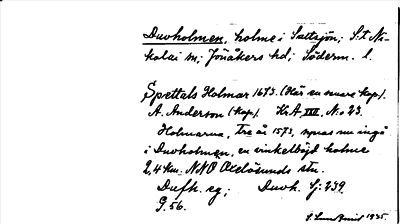 Duvholmen, holme i Saltsjön; S:t Ni-
kolai sn; Jönåkers hd; Söderm. l.
Spettals Holmar 1673. (Här en senare kop).
A. Anderson (kop). KrA XVII, No 23.
Holmarna, tre år 1573, synas nu ingå
i Duvholmen, en vinkelböjd holme
2,4 km. NNO Oxelösunds stn.
Dufh. eg; Duvh. Sj: 239
G. 56.
1935.